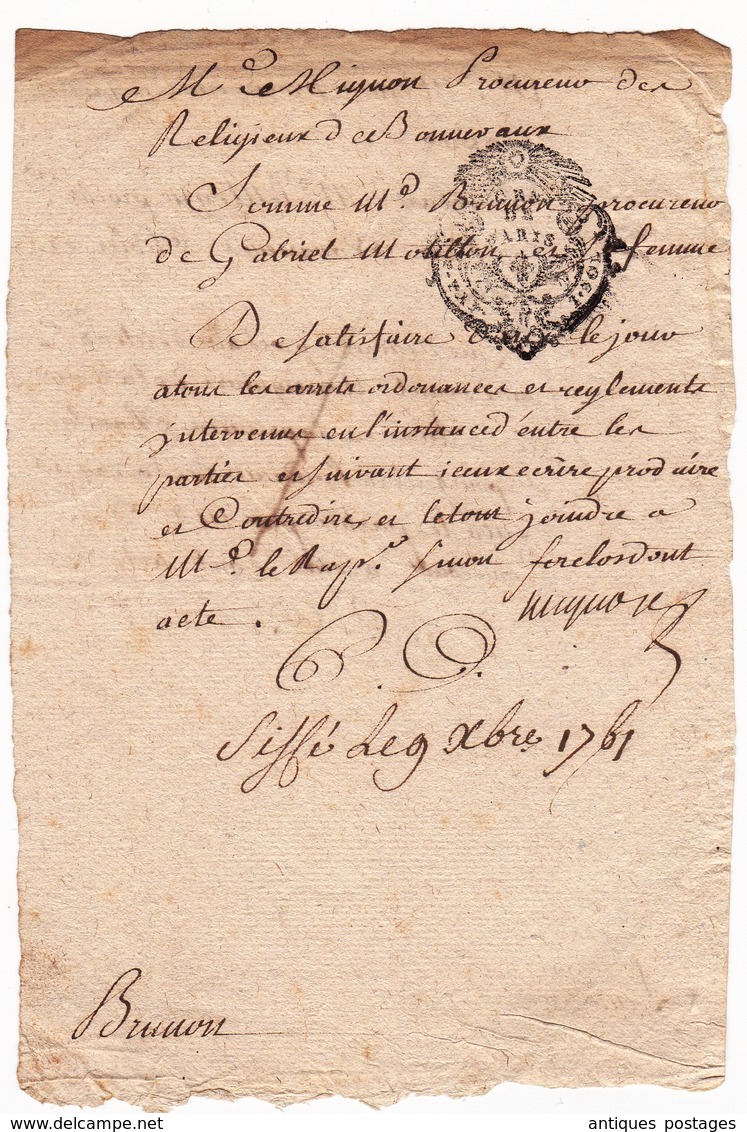 Me Mignon Procureur des
Religieux de Bonnevaux
Somme Me. Brunon procureur
de Gabriel Motillon et sa femme
De satisfaire dans le jour
atous les arrets ordonances et reglements
jntervenus en l'instance d'entre les
parties et suivant iceux ecrire produire
et Contredire, et letout joindre a
Me. le Rapr. sinon forclos dont
acte.
mignon
P. D.
Siffé Le 9 Xbre. 1761
Brunon
GEN
DE
PARIS
antiques postages